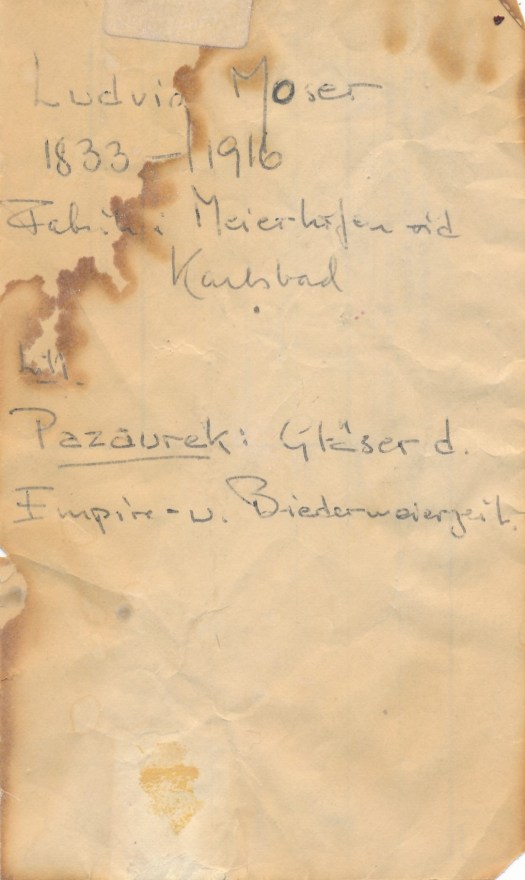 Ludvig Moser
1833-1916
Fabrik: Meierhöfen
Karlsbad
Pazaurek: Gläser d.
Empire- u. Biedermeierzeit.